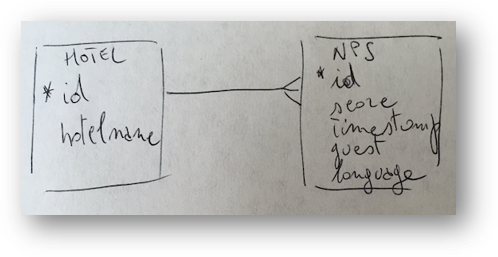 HOTEL
* id
hotelname
NPS
* id
score
timestamp
guest
language